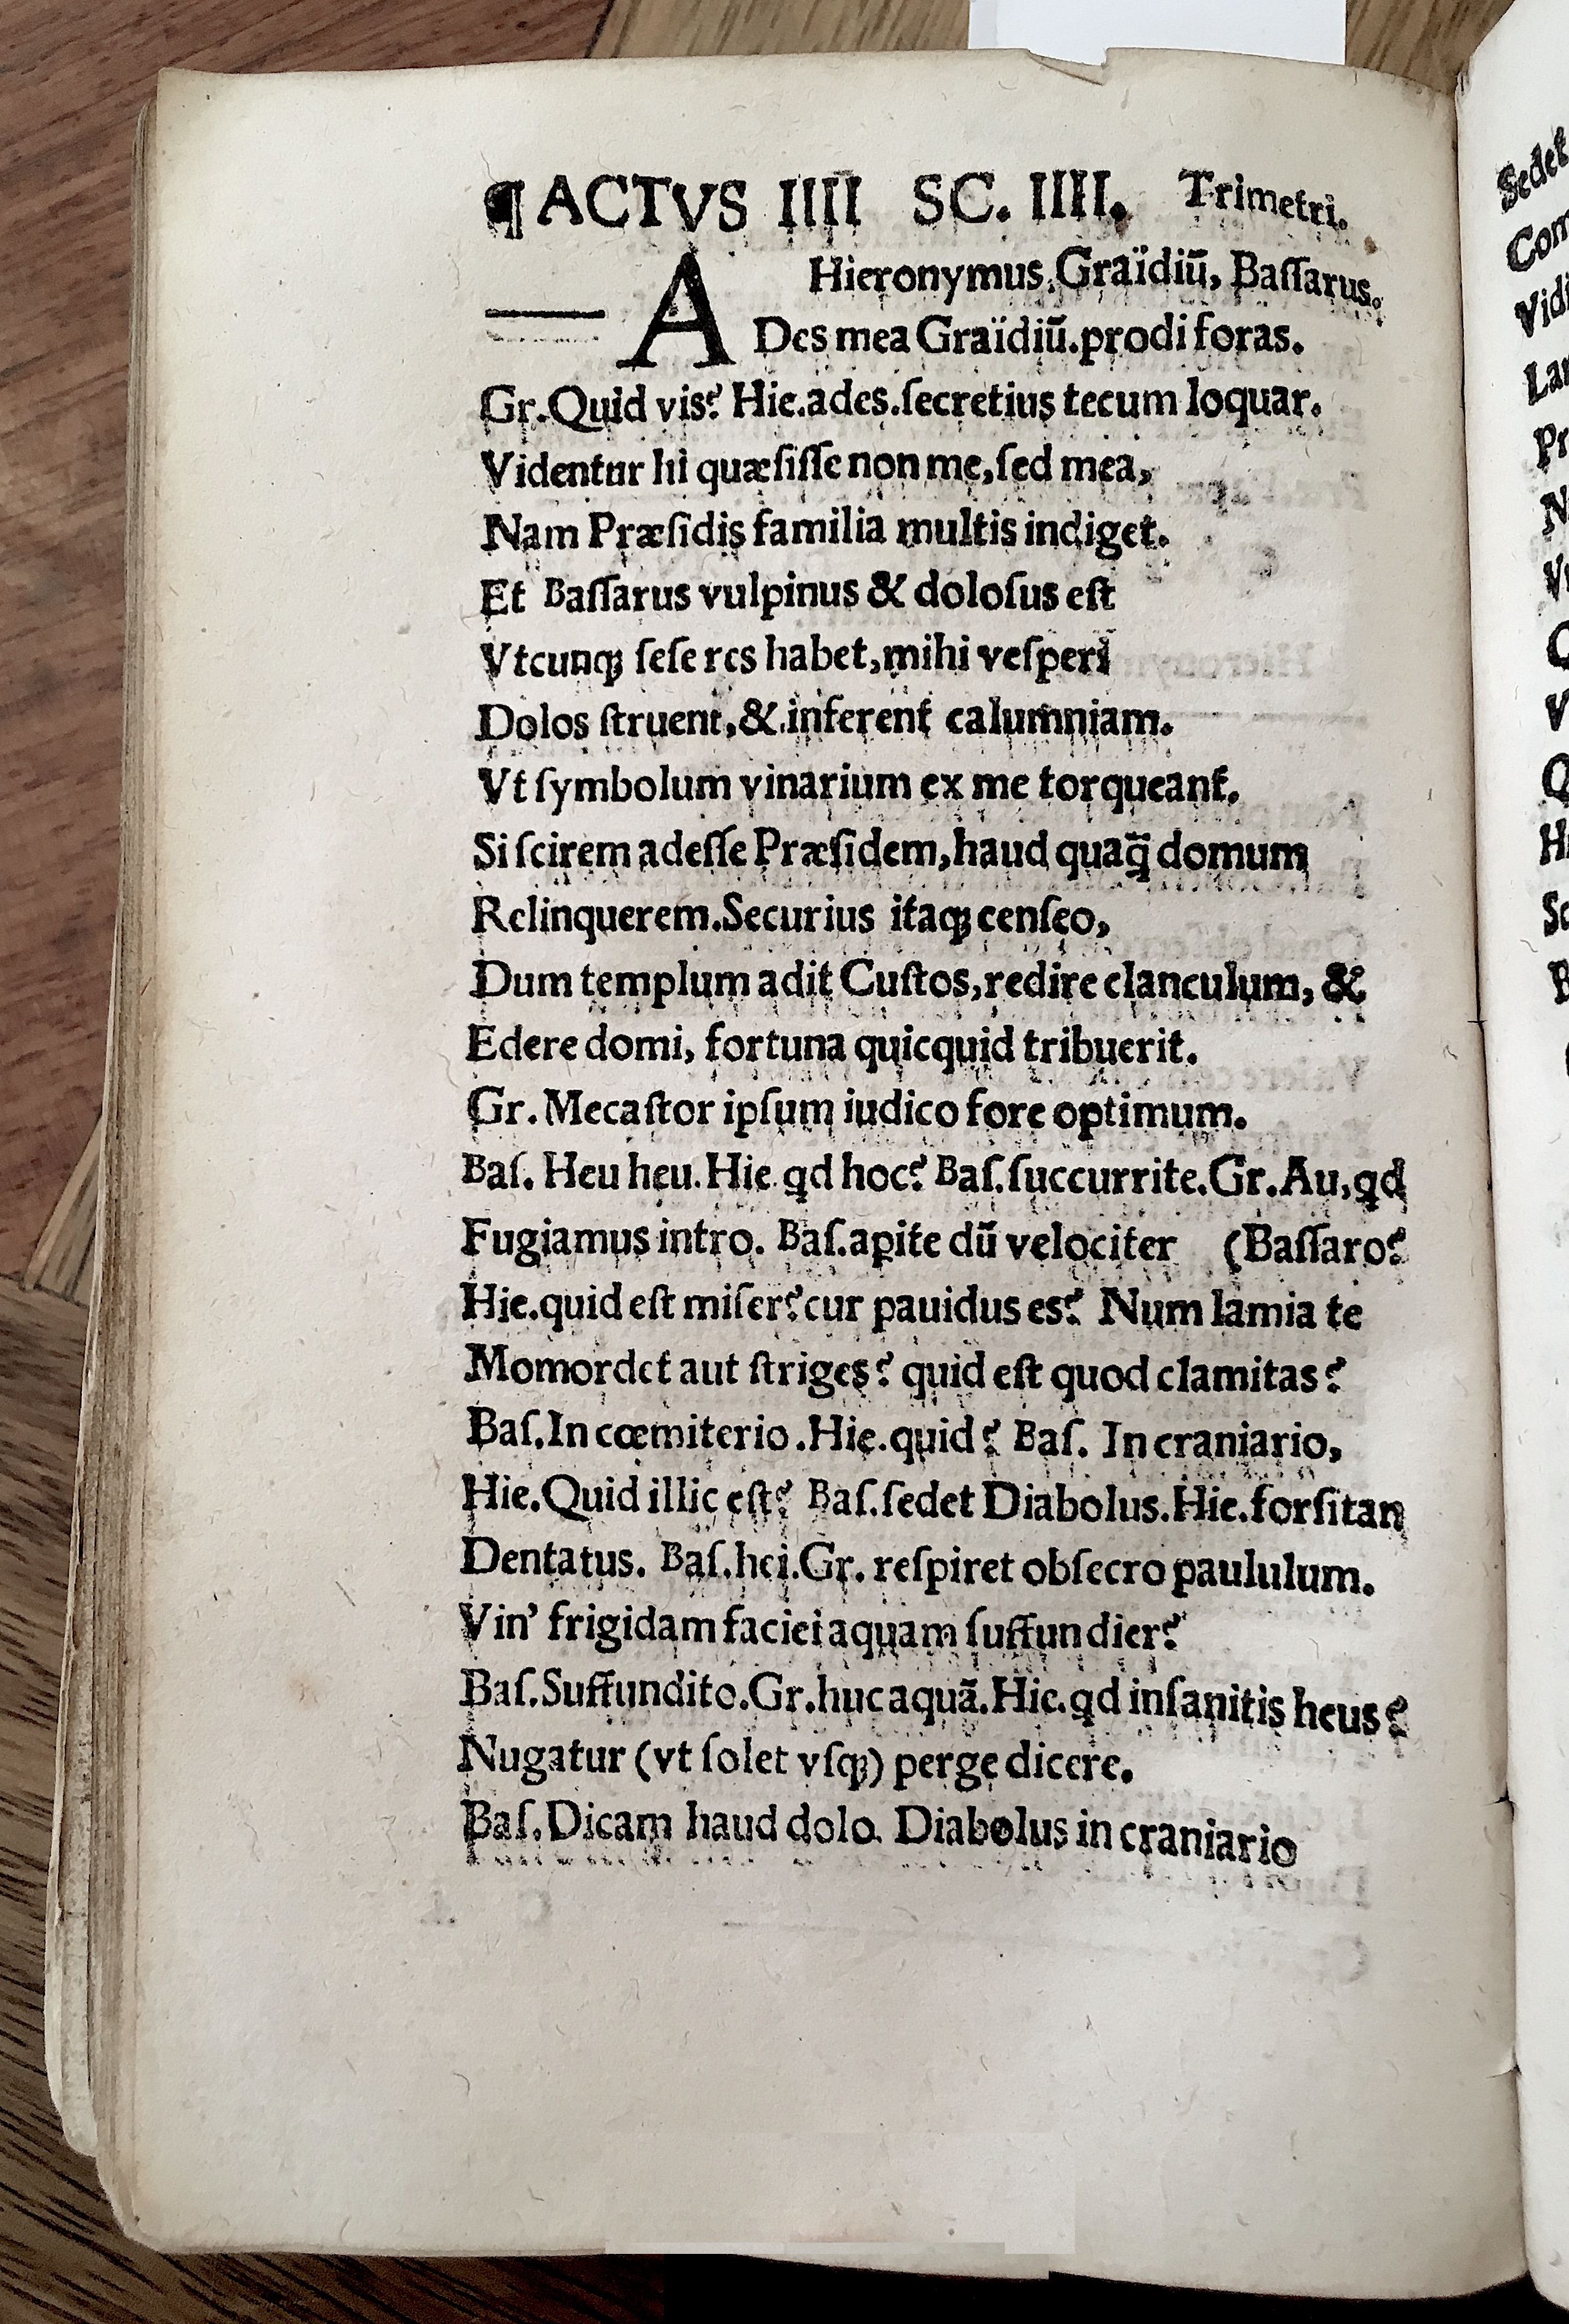 ¶ ACTVS IIII SC. IIII. Trimetri.
Hieronymus, Graïdiū, Baſſarus.
ADes mea Graïdiū. prodi foras.
Gr. Quid vis? Hie. ades. ſecretius tecum loquar.
Videntur hi quæſiſſe non me, ſed mea,
Nam Præſidis familia multis indiget.
Et Baſſarus vulpinus & doloſus eſt
Vtcunqꝫ ſeſe res habet, mihi veſperi
Dolos ſtruent, & inferent calumniam.
Vt ſymbolum vinarium ex me torqueant.
Si ſcirem adeſſe Præſidem, haud quaq̄ domum
Relinquerem. Securius itaqꝫ cenſeo,
Dum templum adit Cuſtos, redire clanculum, &
Edere domi, fortuna quicquid tribuerit.
Gr. Mecaſtor ipſum iudico fore optimum.
Baſ. Heu heu. Hie. qd hoc? Baſ. ſuccurrite. Gr. Au, qd
Fugiamus intro. Baſ. apite dū velociter (Baſſaro?
Hie. quid eſt miſer? cur pauidus es? Num lamia te
Momordet aut ſtriges? quid eſt quod clamitas?
Baſ. In cœmiterio. Hie. quid? Baſ. In craniario,
Hie. Quid illic eſt? Baſ. ſedet Diabolus. Hie. forſitan
Dentatus. Baſ. hei. Gr. reſpiret obſecro paululum.
Vin’ frigidam faciei aquam ſuffundier?
Baſ. Suffundito. Gr. huc aquã. Hie. qd inſanitis heus?
Nugatur (vt ſolet vſqꝫ) perge dicere.
Baſ. Dicam haud dolo. Diabolus in craniario
Sedet